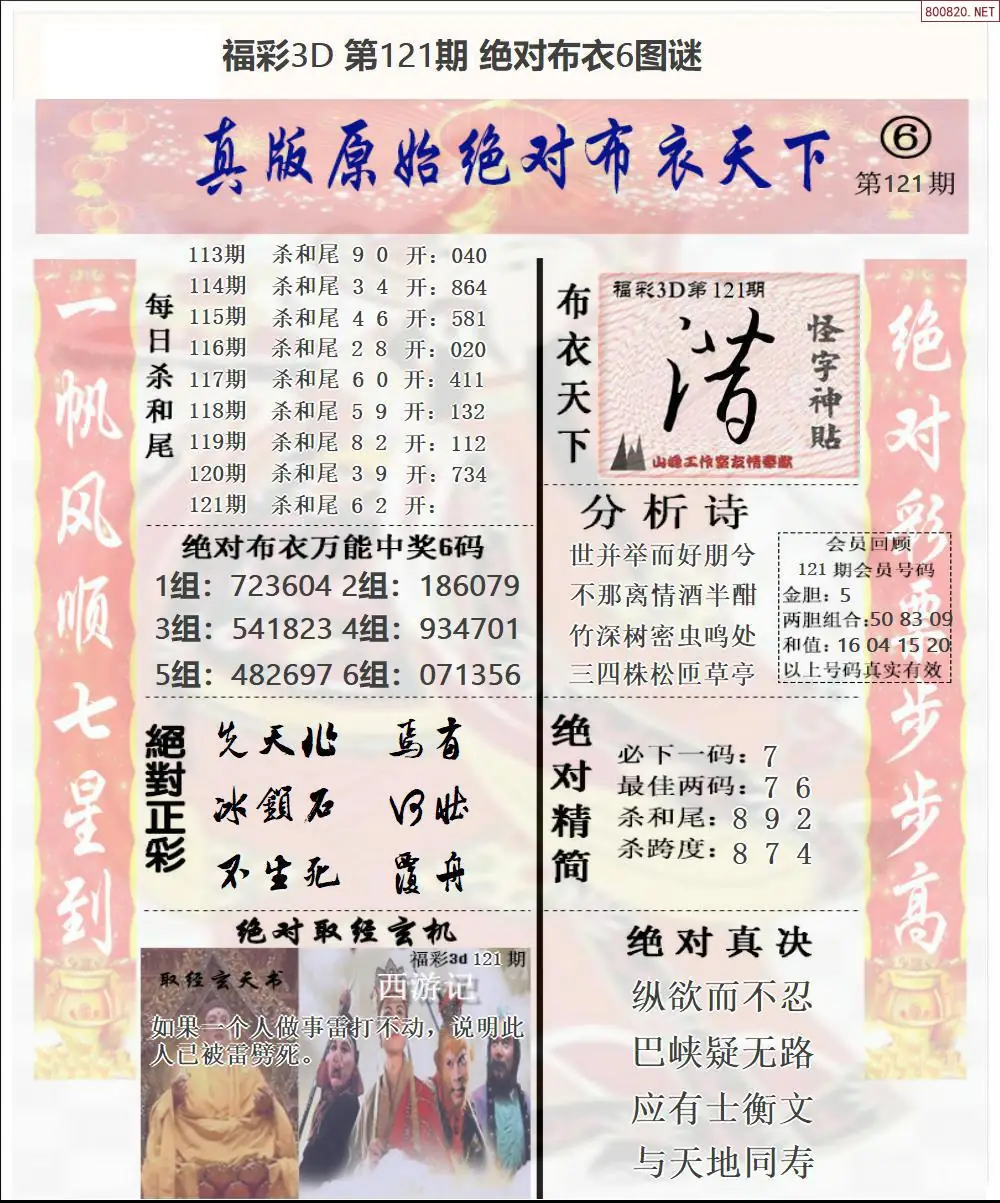 800820.NET
福彩3D 第121期 绝对布衣6图谜
真版原始绝对布衣天下
⑥
第121期
一帆风顺七星到
每日杀和尾
113期 杀和尾 9 0 开：040
114期 杀和尾 3 4 开：864
115期 杀和尾 4 6 开：581
116期 杀和尾 2 8 开：020
117期 杀和尾 6 0 开：411
118期 杀和尾 5 9 开：132
119期 杀和尾 8 2 开：112
120期 杀和尾 3 9 开：734
121期 杀和尾 6 2 开：
绝对布衣万能中奖6码
1组：723604 2组：186079
3组：541823 4组：934701
5组：482697 6组：071356
絕對正彩
先天兆 焉有
冰鎖石 河壯
不生死 覆舟
绝对取经玄机
福彩3d 121期
取经玄天书
西游记
如果一个人做事雷打不动，说明此
人已被雷劈死。
布衣天下
福彩3D第121期
怪字神貼
山峰工作室友情奉献
分析诗
世并举而好朋兮
不那离情酒半酣
竹深树密虫鸣处
三四株松匝草亭
会员回顾
121期会员号码
金胆：5
两胆组合:50 83 09
和值：16 04 15 20
以上号码真实有效
绝对精简
必下一码：7
最佳两码：7 6
杀和尾：8 9 2
杀跨度：8 7 4
绝对真决
纵欲而不忍
巴峡疑无路
应有士衡文
与天地同寿
绝对彩票步步高